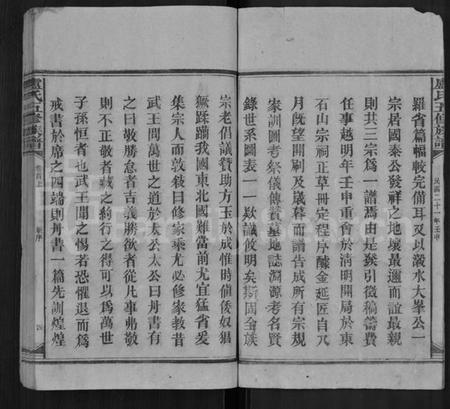 盧氏五修族譜
民國二十一年壬申
羅省篇幅較完備耳又以激水大峯公一
宗居國秦公發祥之地壤最邇而誼最親
則共三宗為一譜焉由是發引徵稿籌費
任事越明年壬申重會於清明開局於東
石山宗祠正草冊定程序醵金延匠自六
月既望開刷及歲暮而譜告成所有宗規
家訓圖考祭儀傳贊墓地誌淵源考名賢
錄世系圖表一一欵議攸明矣斯固全族
宗老倡議贊助方玉於成惟時值倭奴猖
獗蹂躪我國東北國難當前尤宜猛省爰
集宗人而敦敍曰修家乘尤必修家教昔
武王問萬世之道於太公太公曰丹書有
之曰敬勝怠者吉義勝欲者從凡事弗敬
則不正敬者載之約行之得可以為萬世
子孫恒者也武王聞之惕若恐懼退而為
戒書於席之四端則丹書一篇先訓煌煌
盧氏五修族譜
卷首上
新序
四